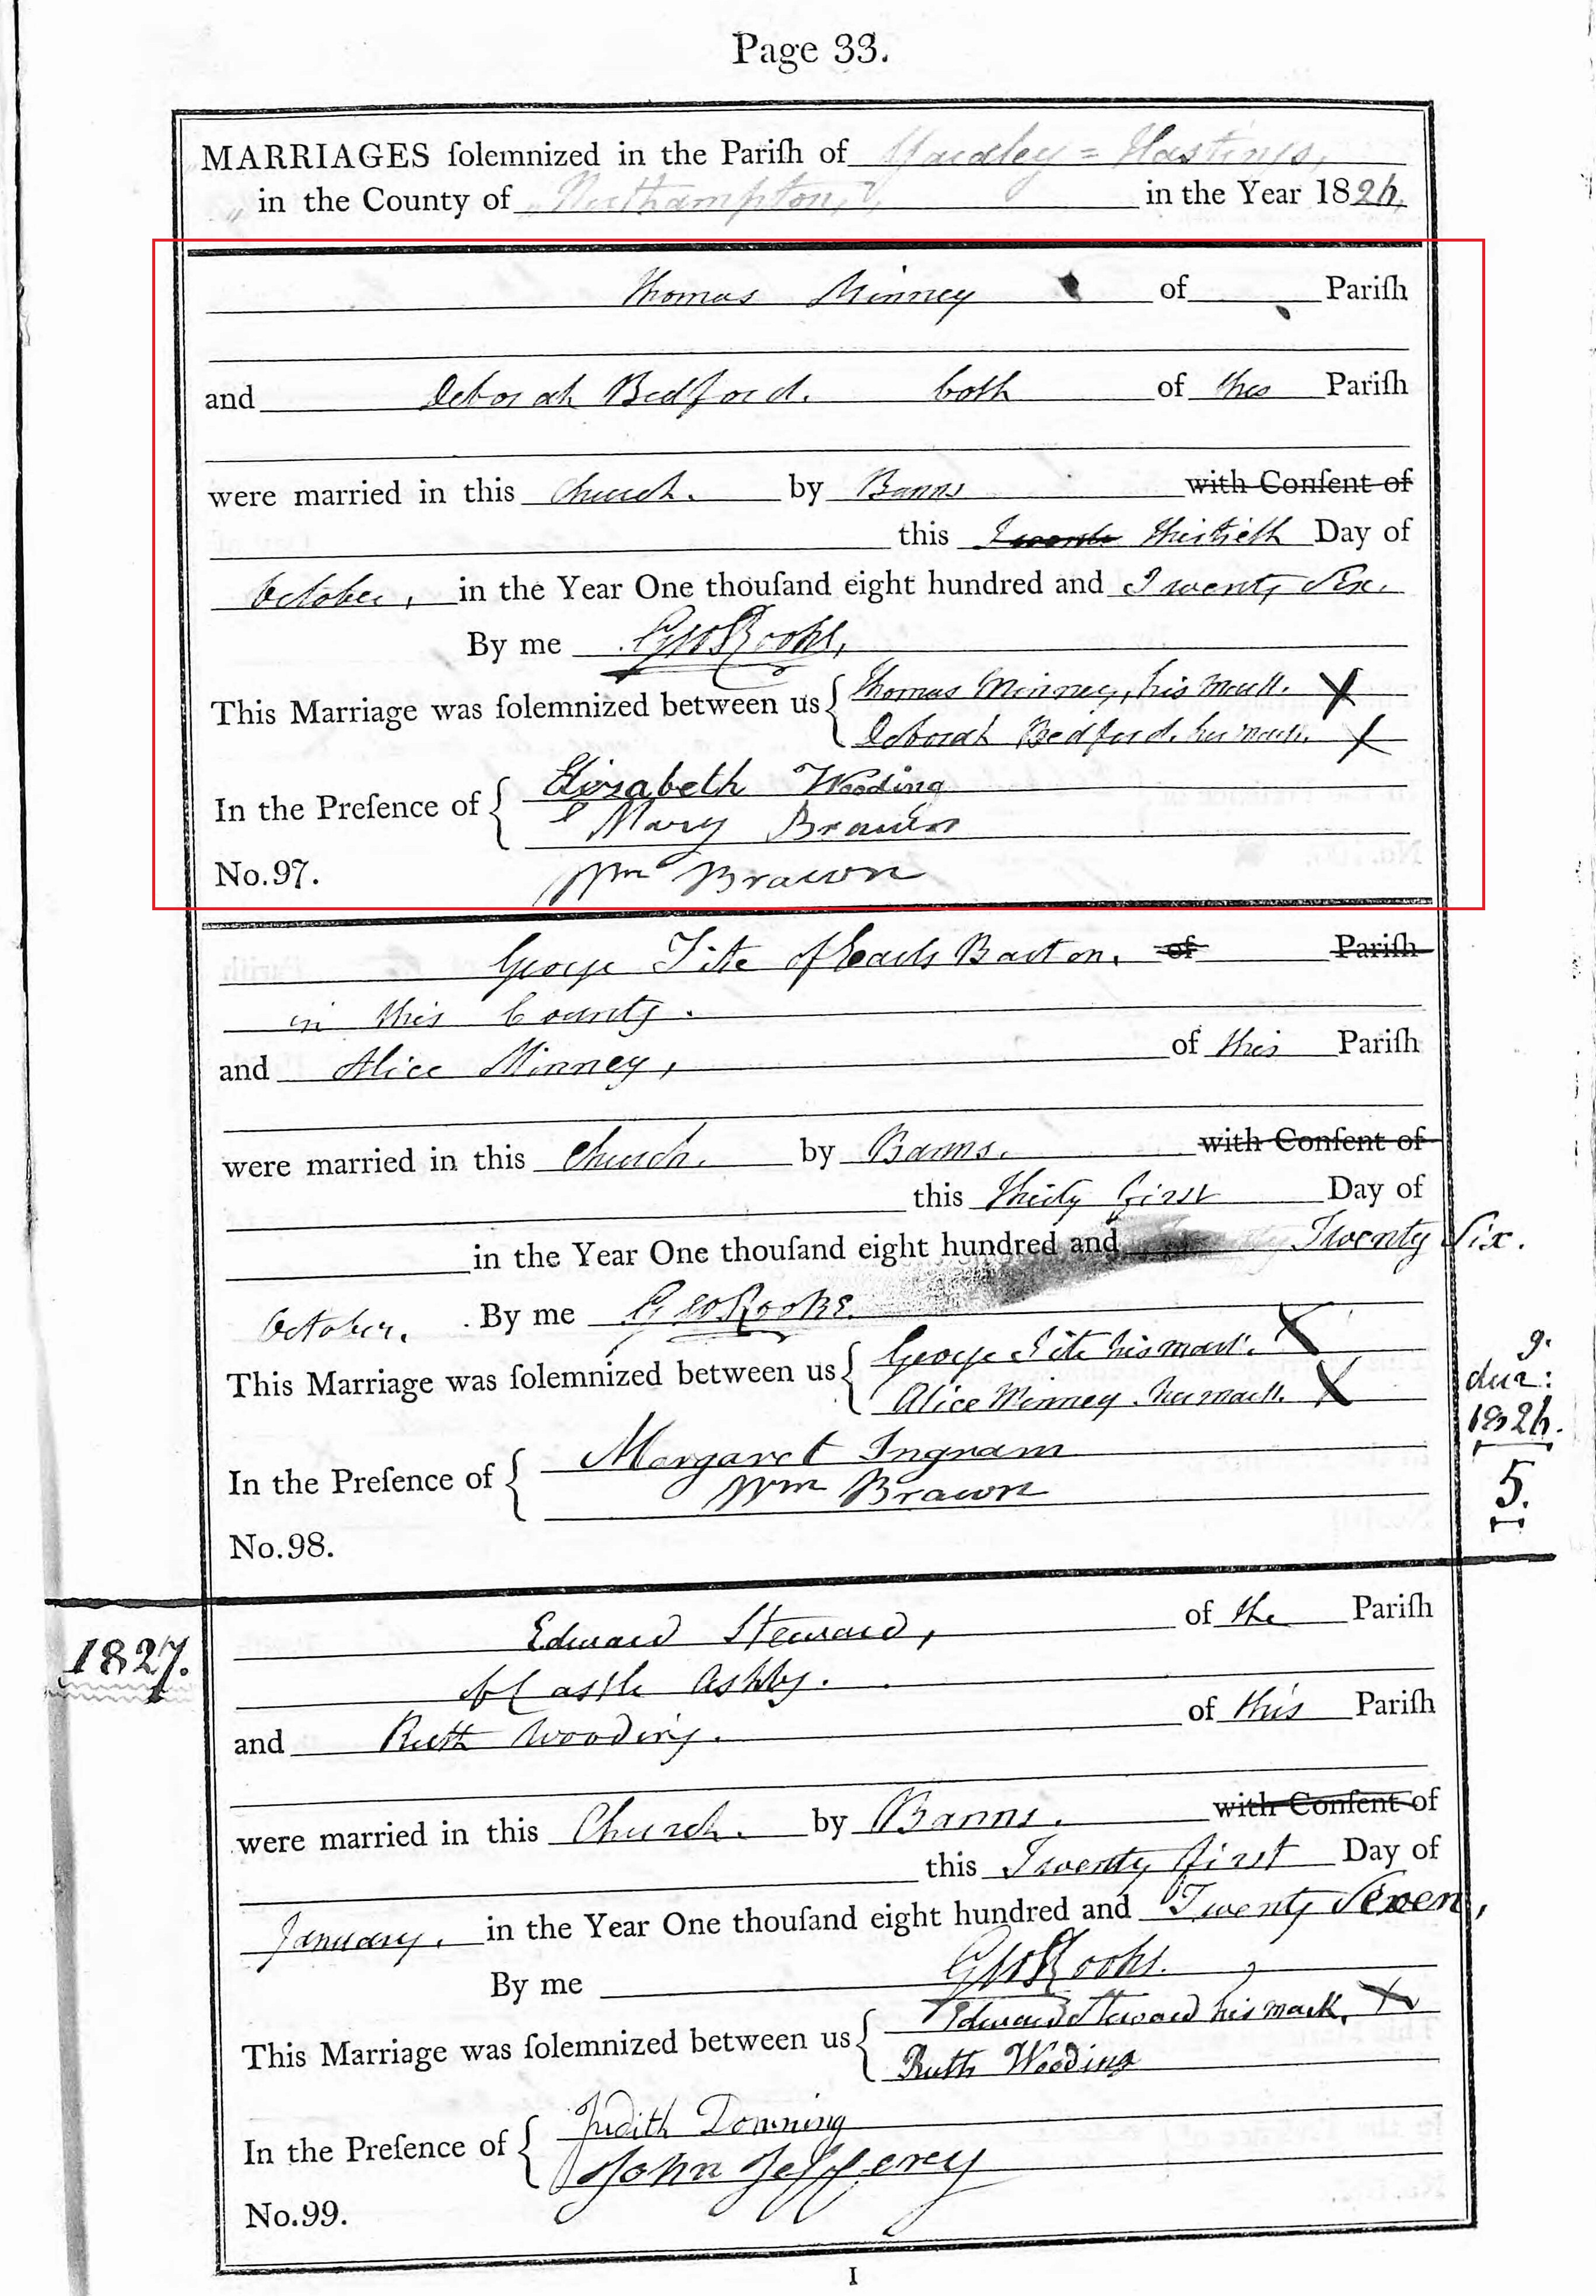 Page 33.
MARRIAGES ſolemnized in the Pariſh of Yardley = Hastings,
in the County of Northampton, in the Year 1826,
Thomas Minney of Pariſh
and Deborah Bedford. both of this Pariſh
were married in this Church. by Banns with Conſent of
this Thirtieth Day of
October, in the Year One thouſand eight hundred and Twenty Six.
By me Geo Rooke,
This Marriage was ſolemnized between us { Thomas Minney, his mark. X
Deborah Bedford. her mark. X
In the Preſence of { Elizabeth Wooding
Mary Brawn
No. 97. Wm Brawn
George Tite of Earls Barton. of Pariſh
in this County.
and Alice Minney, of this Pariſh
were married in this Church. by Banns. with Conſent of
this Thirty first Day of
in the Year One thouſand eight hundred and Twenty Six.
October. By me Geo Rooke.
This Marriage was ſolemnized between us { George Tite his mark. X
Alice Minney. her mark. X
In the Preſence of { Margaret Ingram
Wm Brawn
No. 98.
9.
1826.
5.
1827.
Edward Steward, of the Pariſh
of Castle Ashby.
and Ruth Wooding. of this Pariſh
were married in this Church. by Banns. with Conſent of
this Twenty first Day of
January, in the Year One thouſand eight hundred and Twenty Seven,
By me Geo Rooke.
This Marriage was ſolemnized between us { Edward Steward his mark. X
Ruth Wooding
In the Preſence of { Judith Downing
John Jefferey
No. 99.
I